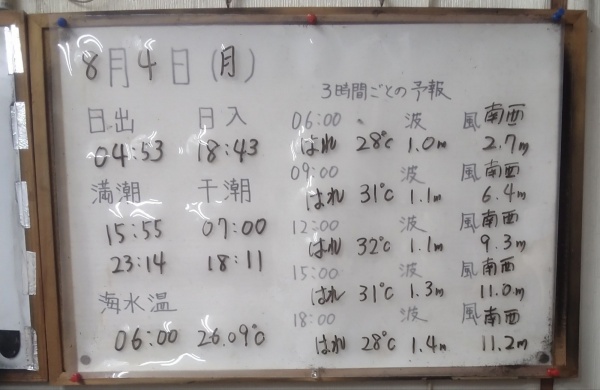 8月4日(月)
日出 日入
04:53 18:43
満潮 干潮
15:55 07:00
23:14 18:11
海水温
06:00 26.09℃
3時間ごとの予報
06:00 波 風 南西
はれ 28℃ 1.0m 2.7m
09:00 波 風 南西
はれ 31℃ 1.1m 6.4m
12:00 波 風 南西
はれ 32℃ 1.1m 9.3m
15:00 波 風 南西
はれ 31℃ 1.3m 11.0m
18:00 波 風 南西
はれ 28℃ 1.4m 11.2m